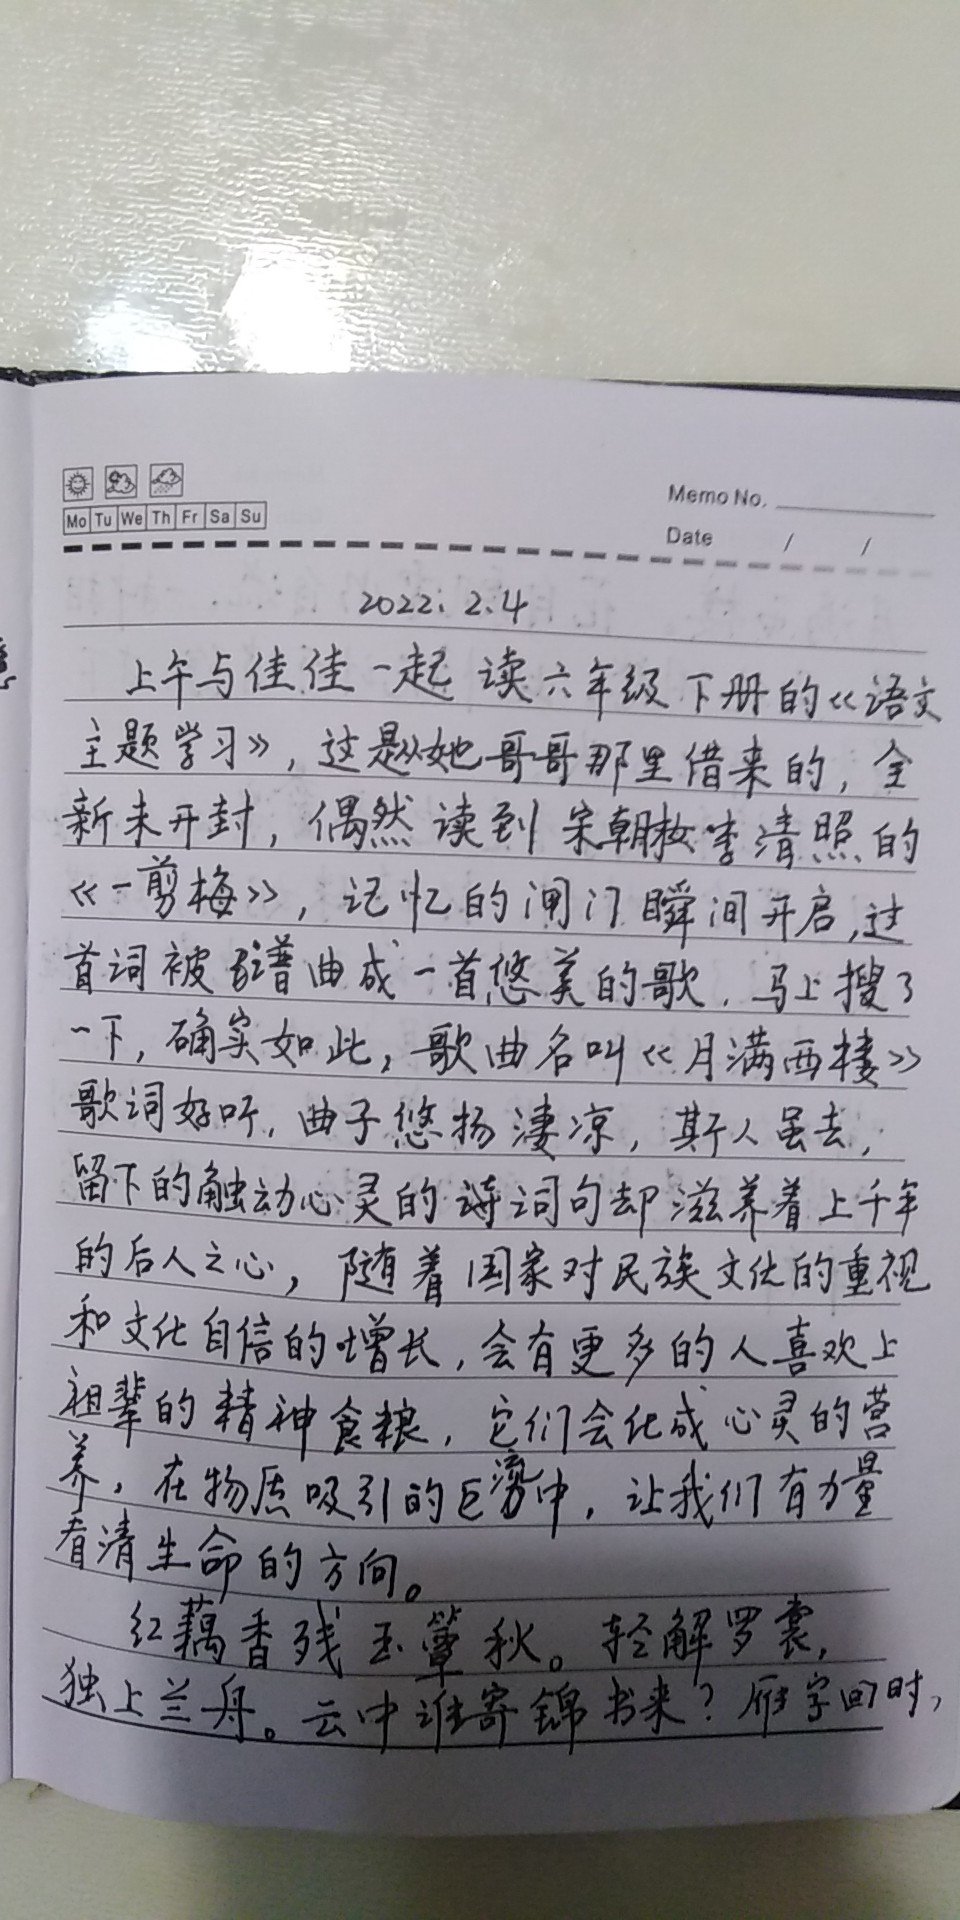 Memo No.
Mo Tu We Th Fr Sa Su
Date / /
2022.2.4
上午与佳佳一起读六年级下册的《语文
主题学习》，这是从她哥哥那里借来的，全
新未开封，偶然读到宋朝李清照的
《一剪梅》，记忆的闸门瞬间开启，这
首词被谱曲成一首悠美的歌，马上搜了
一下，确实如此，歌曲名叫《月满西楼》
歌词好听，曲子悠扬凄凉，斯人虽去，
留下的触动心灵的诗词句却滋养着上千年
的后人之心，随着国家对民族文化的重视
和文化自信的增长，会有更多的人喜欢上
祖辈的精神食粮，它们会化成心灵的营
养，在物质吸引的巨流中，让我们有力量
看清生命的方向。
红藕香残玉簟秋。轻解罗裳，
独上兰舟。云中谁寄锦书来？雁字回时，